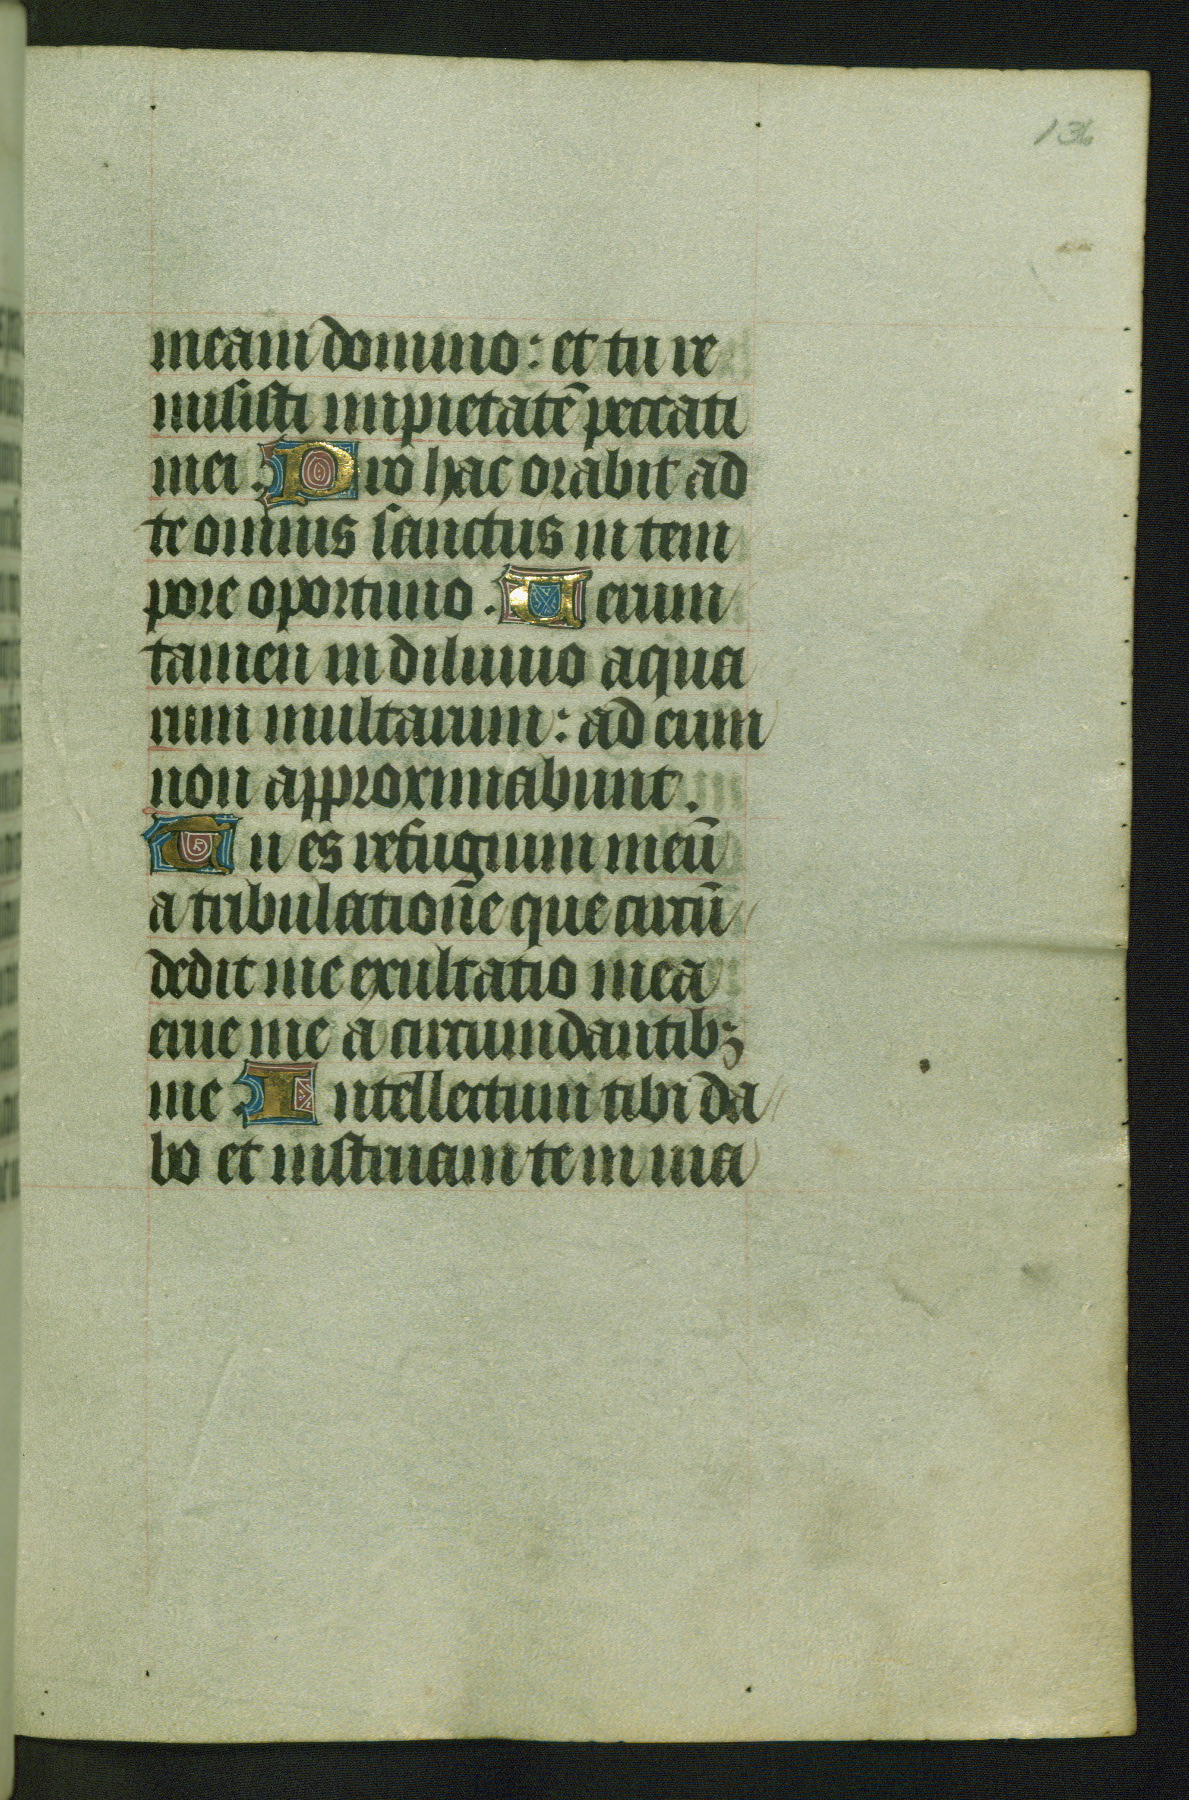 136
meam domino : et tu re
misisti impietatē peccati
mei . Pro hac orabit ad
te omnis sanctus in tem
pore oportuno . Uerum
tamen in diluuio aqua
rum multarum : ad eum
non approximabunt .
Tu es refugium meū
a tribulationē que circū
dedit me exultatio mea
erue me a circumdantibꝫ
me . Intellectum tibi da
bo et instruam te in uia